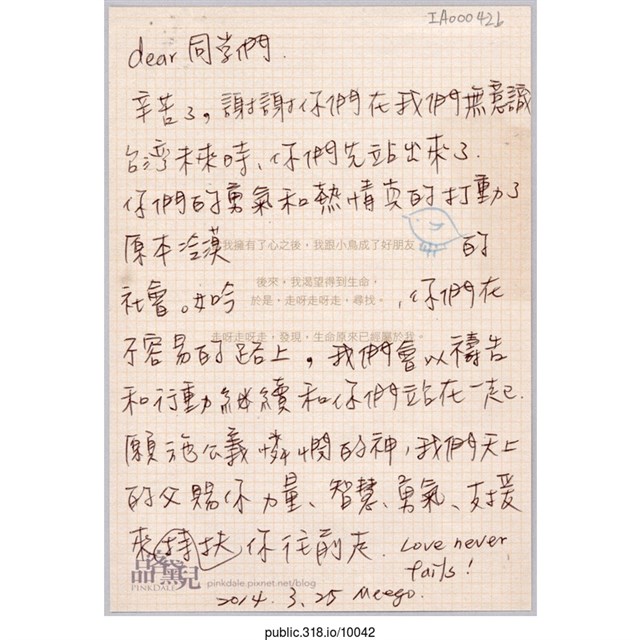 IA00042b
dear 同学們.
辛苦了，謝謝你們在我們無意識
台湾未來時、你們先站出來了.
你們的勇氣和熱情真的打動了
原本冷漠 的
我擁有了心之後，我跟小鳥成了好朋友
後來，我渴望得到生命，
社會。 , 你們在
於是，走呀走呀走，尋找。
走呀走呀走，發現，生命原來已經屬於我。
不容易的路上，我們會以禱告
和行動継續和你們站在一起.
願施公義憐憫的神，我們天上
的父賜你力量、智慧、勇氣、支援
來持扶你往前走. Love never
fails!
品客黛兒
PINKDALE pinkdale.pixnet.net/blog
2014.3.25 Meego.
public.318.io/10042